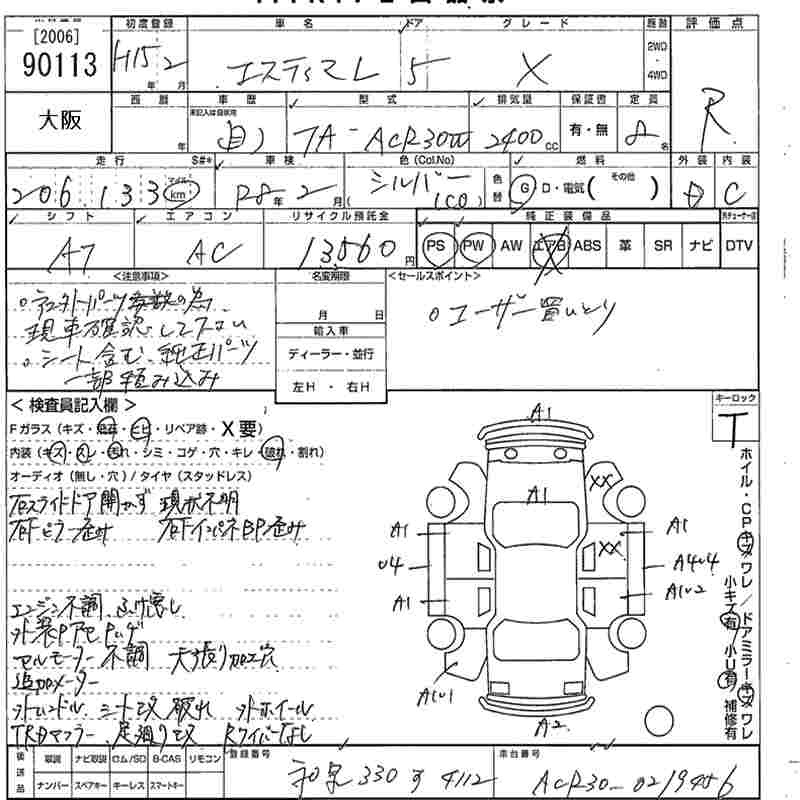 [2006]
90113
大阪
初度登録 車名 ドア グレード 駆動 評価点
H15年 2月 エスティマL 5 X 2WD・4WD R
西暦 車歴 型式 排気量 保証書 定員
年 未記入は自家用 自 TA-ACR30W 2400cc 有・無 8名
走行 S#* 車検 色(Col.No) 燃料 外装 内装
206,133 マイル km R8年 2月 シルバー (1C0) 色替 G・D・電気( その他 ) D C
シフト エアコン リサイクル預託金 純正装備品
AT AC 13560円 PS PW AW エアB ABS 革 SR ナビ DTV
<注意事項> 名変期限 <セールスポイント>
月 日 ○ユーザー買いとり
現車確認して下さい
輸入車
○シート含む、純正パーツ
ディーラー・並行
一部積み込み
左H・右H
<検査員記入欄> キーロック
Fガラス(キズ・飛石・ヒビ・リペア跡・X要) T
内装(キズ・スレ・汚れ・シミ・コゲ・穴・キレ・破れ・割れ)
オーディオ(無し・穴)/タイヤ(スタッドレス)
右スライドドア開かず 現状不明
右Fピラー歪み 右FインパネBP歪み
エンジン不調、ふけ悪し
セルモーター不調 天張り加工穴
追加メーター
社外ハンドル シートコス破れ 社外ホイール
TRDマフラー 足廻りコス Rワイパーなし
A1
A1
XX
XX
A1 A1
U4 A4U4
A1 A1U2
A1U1
A2
ホイル・CPキズワレ/ドアミラーキズワレ
小キズ有 小U有 補修有
後送品 取説 ナビ取説 ロム/SD B-CAS リモコン 登録番号 車台番号
ナンバー スペアキー キーレス スマートキー 和泉330 す 4112 ACR30-0219456